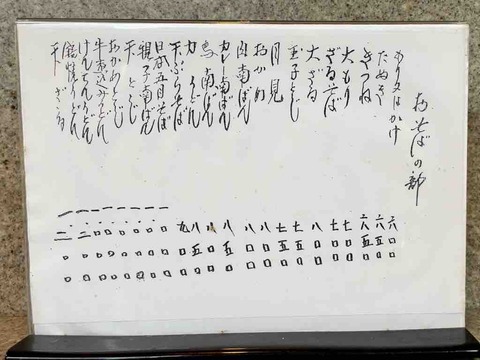 お そばの部
もり又はかけ 六〇〇
たぬき 六五〇
きつね 六五〇
大もり 七〇〇
ざるそば 七〇〇
大ざる 八〇〇
玉子とじ 七五〇
月見 七五〇
おかめ 八〇〇
肉南ばん 八〇〇
カレー南ばん 八五〇
鳥南ばん 八〇〇
力うどん 八五〇
天ぷらそば 九〇〇
日本五目そば 一、〇〇〇
親子南ばん 一、〇〇〇
天とじ 一、〇〇〇
おかめとじ 一、〇〇〇
牛煮込うどん 一、〇〇〇
けんちんうどん 一、〇〇〇
鍋焼うどん 一、二〇〇
天ざる 一、二〇〇